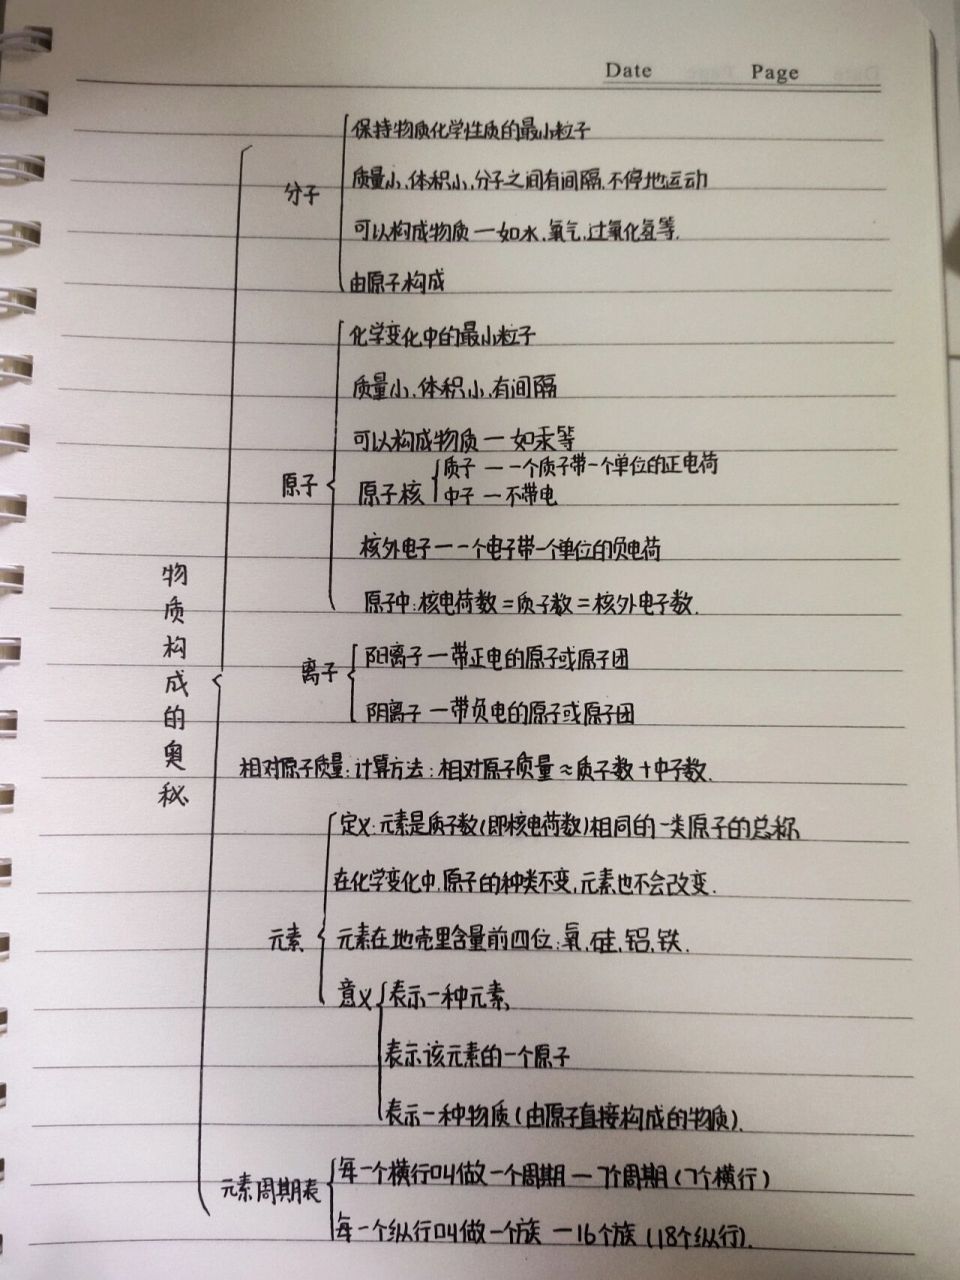 Date Page
保持物质化学性质的最小粒子
分子
质量小,体积小,分子之间有间隔,不停地运动
可以构成物质一如水,氧气,过氧化氢等.
由原子构成
化学变化中的最小粒子
质量小,体积小,有间隔
可以构成物质一如汞等
原子
原子核
质子 一一个质子带一个单位的正电荷
中子 一不带电
核外电子一一个电子带一个单位的负电荷
原子中:核电荷数=质子数=核外电子数.
物质构成的奥秘
离子
阳离子 一带正电的原子或原子团
阴离子 一带负电的原子或原子团
相对原子质量:计算方法:相对原子质量≈质子数+中子数.
元素
定义:元素是质子数(即核电荷数)相同的一类原子的总称
在化学变化中,原子的种类不变,元素也不会改变.
元素在地壳里含量前四位:氧,硅,铝,铁.
意义
表示一种元素
表示该元素的一个原子
表示一种物质(由原子直接构成的物质).
元素周期表
每一个横行叫做一个周期一7个周期(7个横行)
每一个纵行叫做一个族 一16个族(18个纵行).